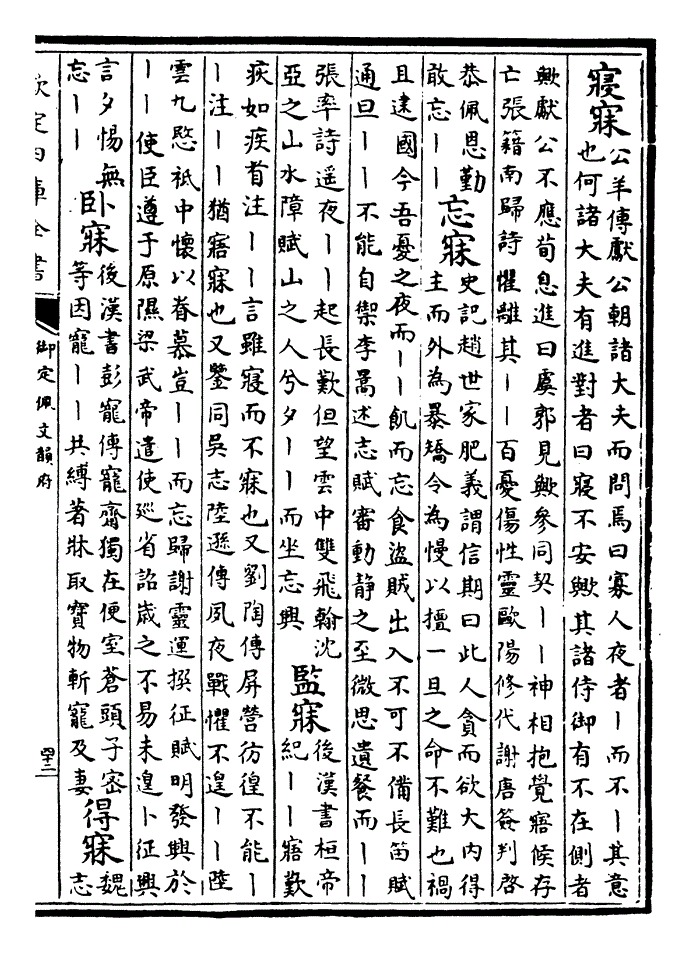 寢寐公羊傳獻公朝諸大夫而問焉曰寡人夜者丨而不丨其意
也何諸大夫有進對者曰寢不安歟其諸侍御有不在側者
歟獻公不應荀息進曰虞郭見歟參同契丨丨神相抱覺寤候存
亡張籍南歸詩懼離其丨丨百憂傷性靈歐陽修代謝唐簽判啓
恭佩恩勤
敢忘丨丨
忘寐史記趙世家肥義謂信期曰此人貪而欲大內得
主而外為暴矯令為慢以擅一旦之命不難也禍
且逮國今吾憂之夜而丨丨飢而忘食盜賊出入不可不備長笛賦
通旦丨丨不能自禦李暠述志賦審動静之至微思遺餐而丨丨
張率詩遥夜丨丨起長歎但望雲中雙飛翰沈
亞之山水障賦山之人兮夕丨丨而坐忘興
監寐後漢書桓帝
紀丨丨寤歎
疢如疾首注丨丨言雖寢而不寐也又劉陶傳屏營彷徨不能丨
丨注丨丨猶寤寐也又鑒同吳志陸遜傳夙夜戰懼不遑丨丨陸
雲九愍祇中懷以眷慕豈丨丨而忘歸謝靈運撰征賦明發興於
丨丨使臣遵于原隰梁武帝遣使廵省詔歳之不易未遑卜征興
言夕惕無
忘丨丨
卧寐後漢書彭寵傳寵齋獨在便室蒼頭子密
等因寵丨丨共縛著牀取寶物斬寵及妻
得寐魏
志
欽定四庫全書
御定佩文韻府
四十二